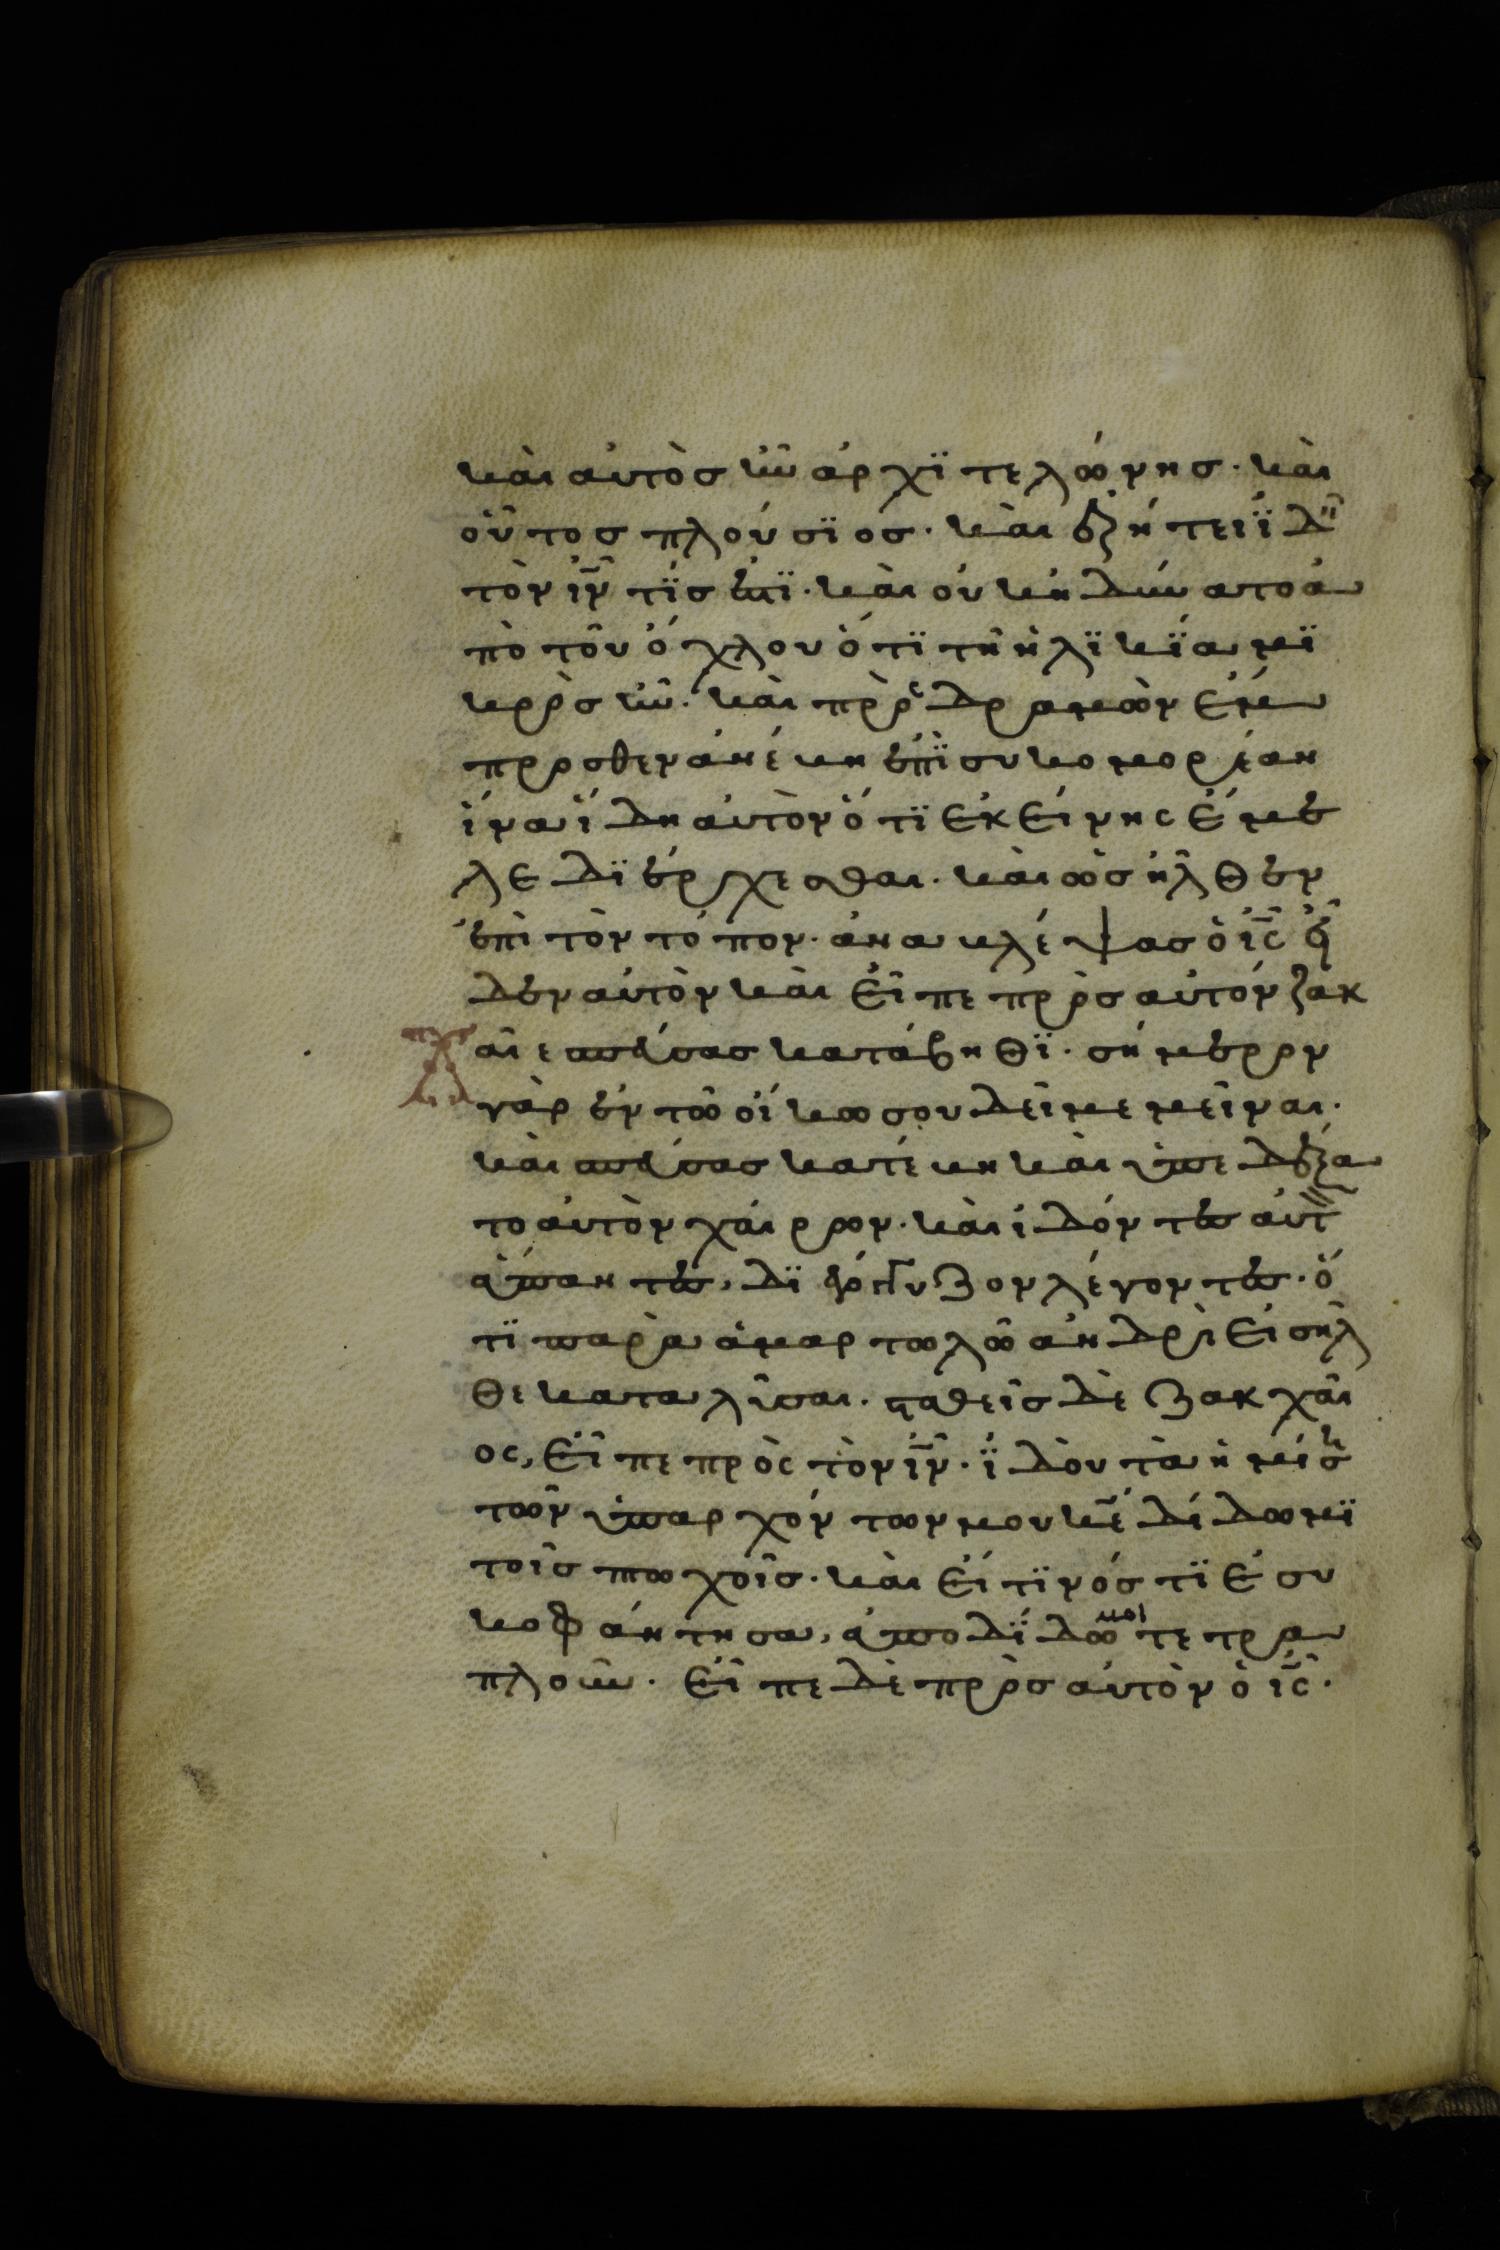 καὶ αὐτὸσ ἦν ἀρχϊτελώνησ· καὶ
οὗτοσ πλούσϊοσ· καὶ ἐζήτει ἰ̈δεῖ
τὸν ἰν̅ τΐσ ἐστϊ· καὶ οὐκ ἠδύνατο ἀ
πὸ τοῦ ὄχλου ὅτϊ τῆ ἡλϊκΐα μϊ
κρὸσ ἦν· καὶ προδραμὼν ἔμ
προσθεν ἀνέβη ἐπῒ συκομορέαν
ἵνα ἴδη αὐτὸν ὅτϊ ἐκείνης ἔμε
λε δϊέρχεσθαι· καὶ ὡσ ἦλθεν
ἐπὶ τὸν τόπον· ἀναβλέψασ ὁ ις̅ εἶ
δεν αὐτὸν καὶ εἶπε πρὸσ αὐτόν ζακ
χαῖε σπεύσασ κατάβηθϊ· σήμερον
γὰρ ἐν τῶ οἴκω σου δεῖ με μεῖναι·
καὶ σπεύσασ κατέβη καὶ ὑπεδέξα
το αὐτὸν χαίρων· καὶ ἰδόντεσ αὐτ
ἅπαντεσ, δϊεγόγγυζον λέγοντεσ· ὅ
τϊ παρὰ ἁμαρτωλῶ ἀνδρὶ εἰσῆλ
θε καταλῦσαι· σταθεὶσ δὲ ζακχαῖ
ος, εἶπε πρὸς τὸν ἰν̅· ἰ̈δοὺ τὰ ἡμίση
τῶν ὑπαρχόντων μου κε̅ δίδωμϊ
τοῖσ πτωχοῖσ· καὶ εἴ τϊνόσ τϊ ἐσυ
κοφάντησα, ἀποδΐδωμοι τετρα
πλοῦν· εἶπε δὲ πρὸσ αὐτὸν ὁ ις̅·